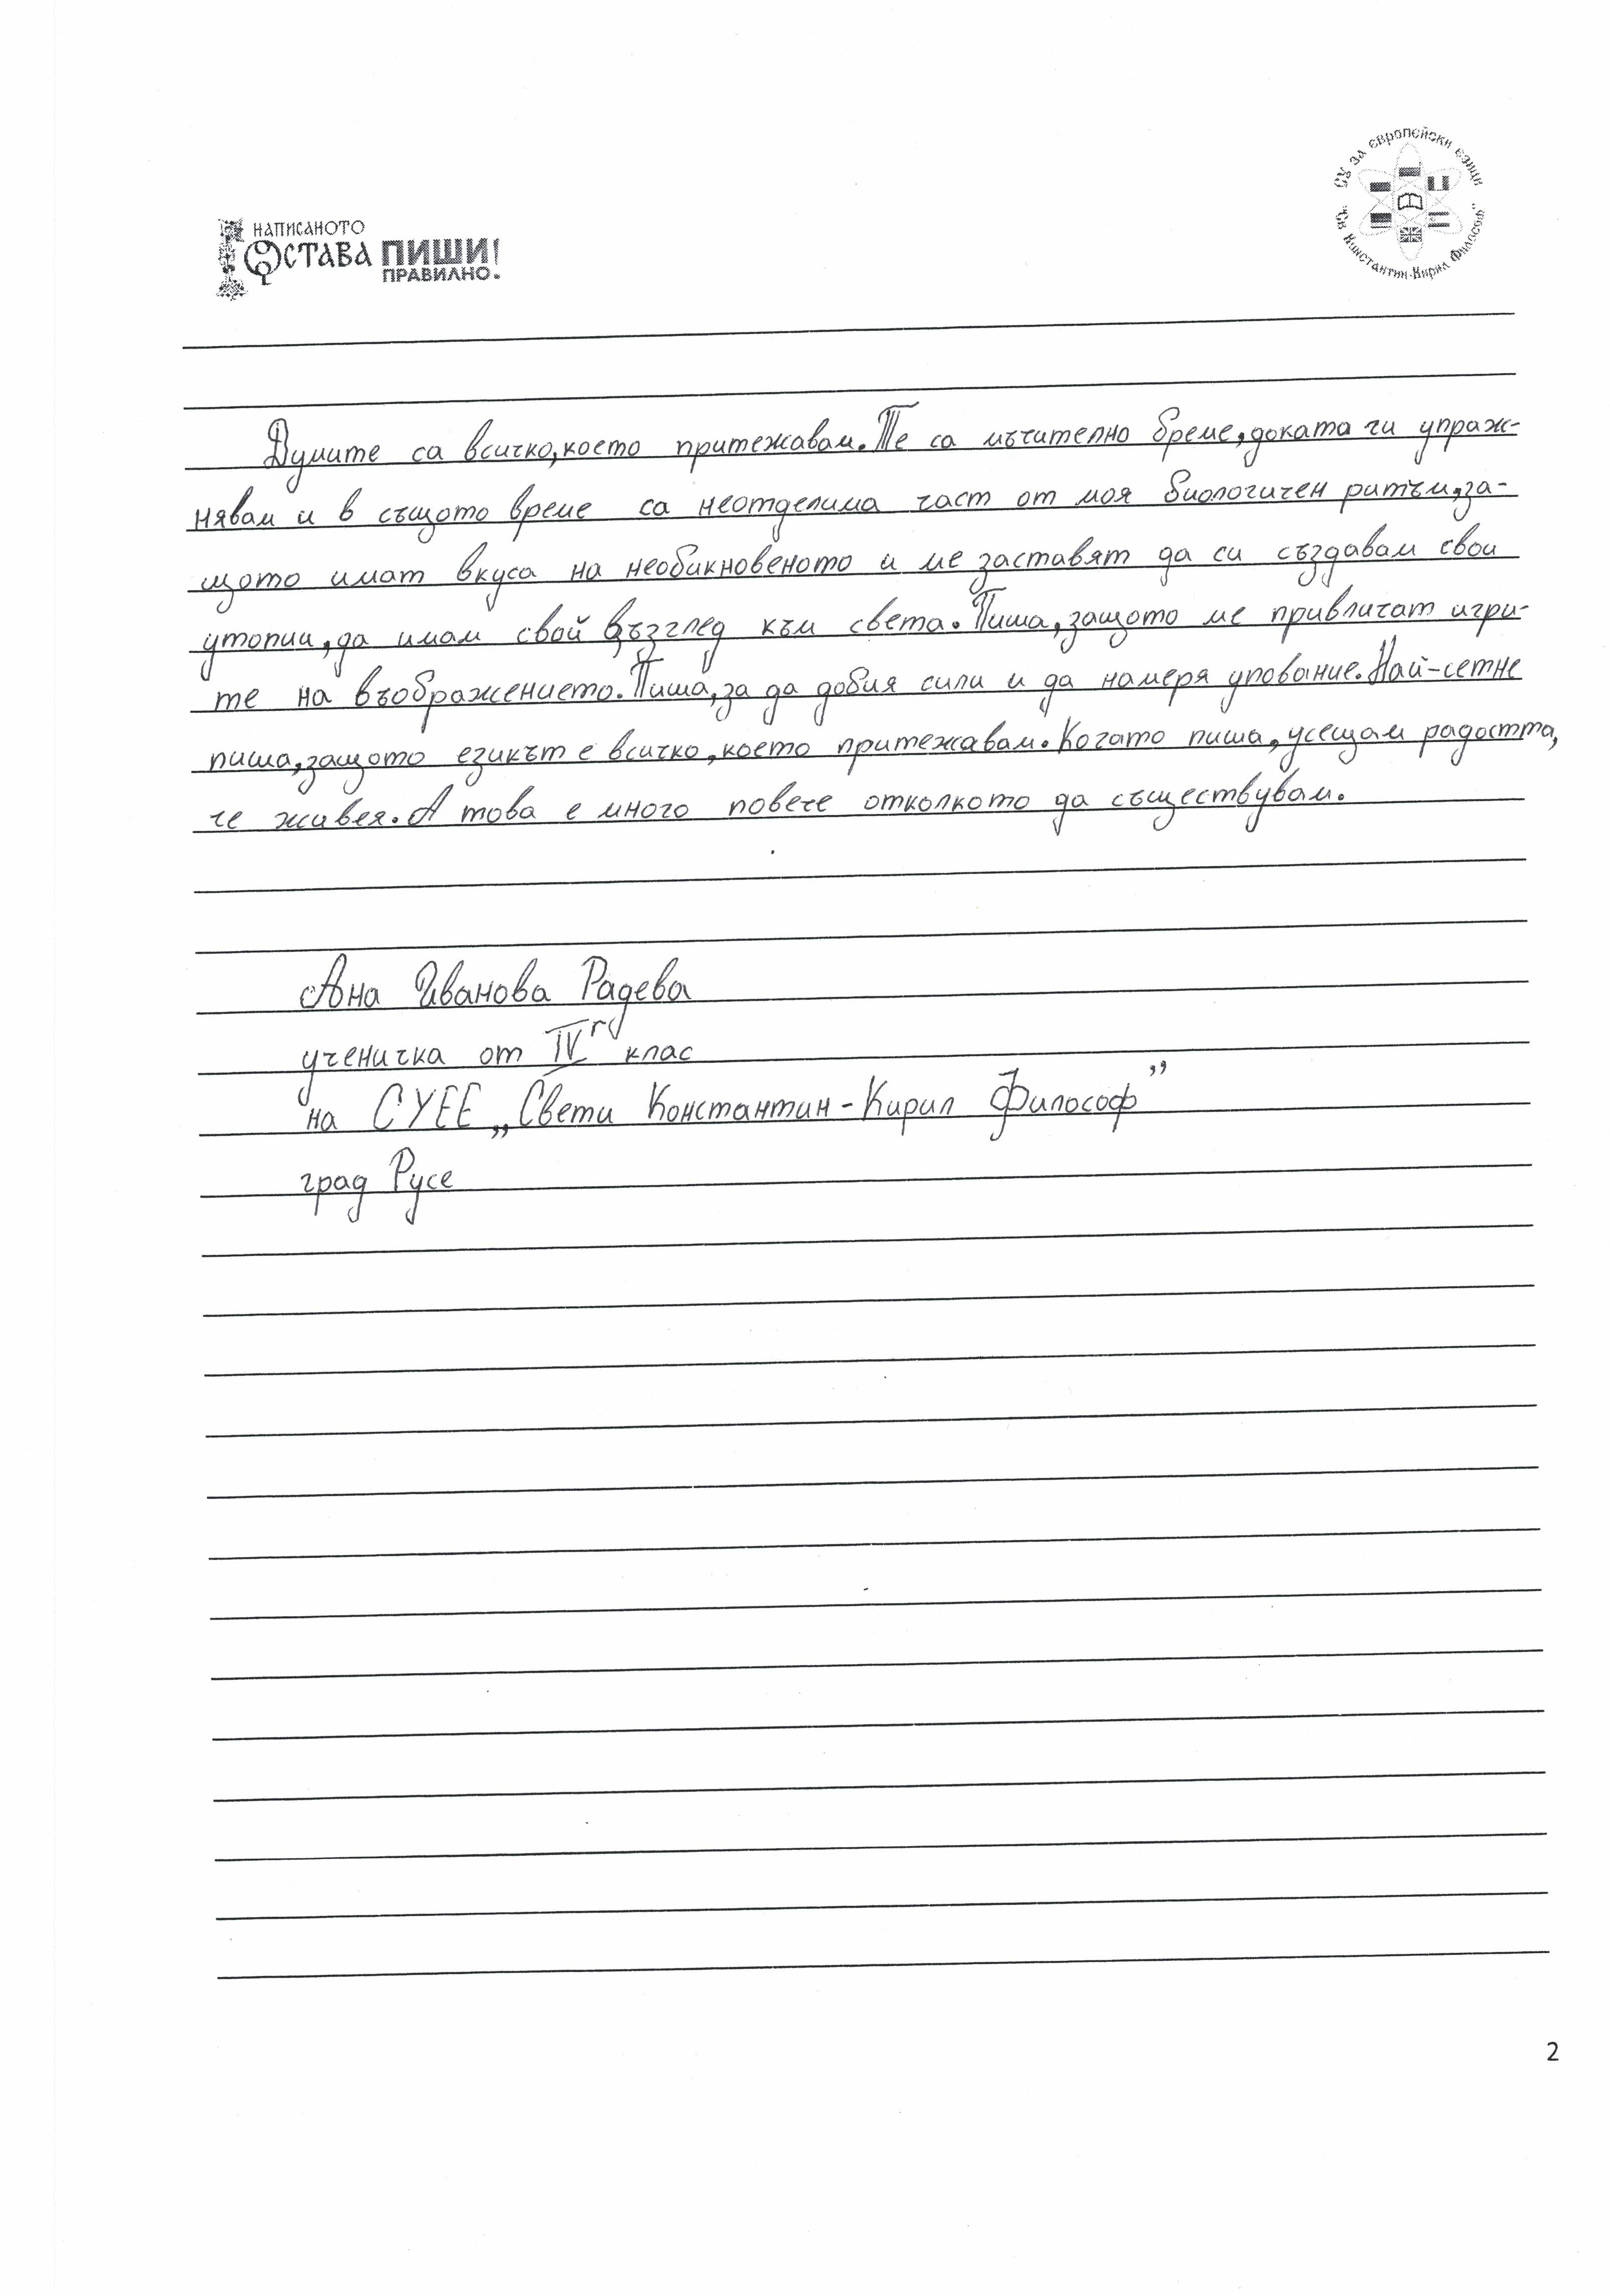 НАПИСАНОТО
ОСТАВА ПИШИ!
ПРАВИЛНО.
СУ за европейски езици
"Св. Константин-Кирил Философ"
Думите са всичко, което притежавам. Те са мъчително бреме, доката ги упраж-
нявам и в същото време са неотделима част от моя биологичен ритъм, за-
щото имат вкуса на необикновеното и ме заставят да си създавам свои
утопии, да имам свой възглед към света. Пиша, защото ме привличат игри-
те на въображението. Пиша, за да добия сили и да намеря упование. Най-сетне
пиша, защото езикът е всичко, което притежавам. Когато пиша, усещам радостта,
че живея. А това е много повече отколкото да съществувам.
Ана Иванова Радева
ученичка от IVг клас
на СУЕЕ „Свети Константин-Кирил Философ”
град Русе
2